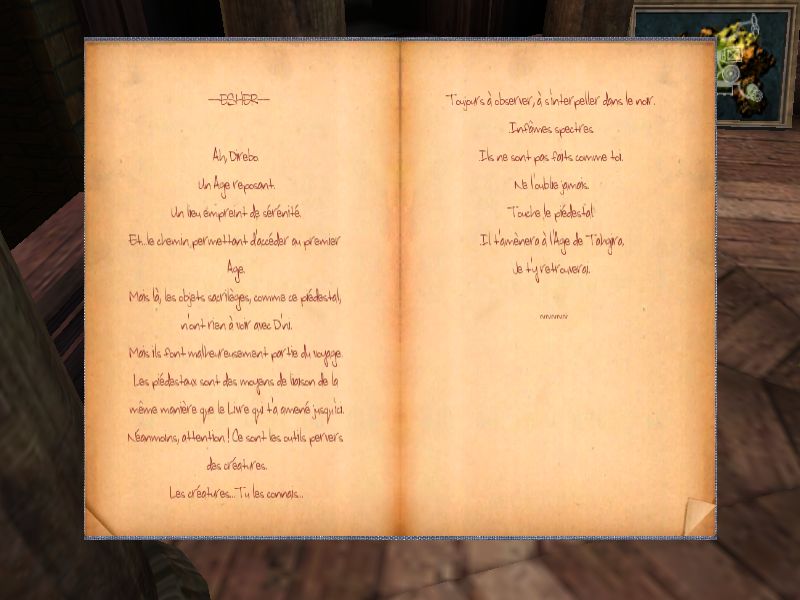 ESHER
Ah, Direbo
Un Âge reposant.
Un lieu empreint de sérénité.
Et...le chemin permettant d'accéder au premier
Âge.
Mais là, les objets sacrilèges, comme ce piédestal,
n'ont rien à voir avec D'ni.
Mais ils font malheureusement partie du voyage.
Les piédestaux sont des moyens de liaison de la
même manière que le Livre qui t'a amené jusqu'ici.
Néanmoins, attention ! Ce sont les outils pervers
des créatures.
Les créatures... Tu les connais...
Toujours à observer, à s'interpeller dans le noir.
Infâmes spectres
Ils ne sont pas faits comme toi.
Ne l'oublie jamais.
Touche le piédestal
Il t'amènera à l'Âge de Tahgira.
Je t'y retrouverai.